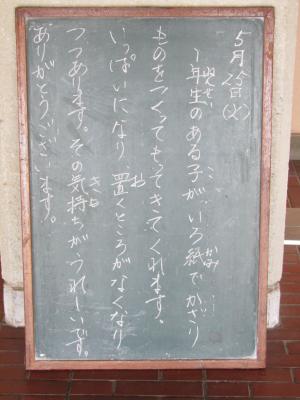 5月28日(火)
1年生のある子が、いろ紙でかざり
ものをつくってもってきてくれます。
いっぱいになり、置くところがなくなり
つつあります。その気持ちがうれしいです。
ありがとうございます。